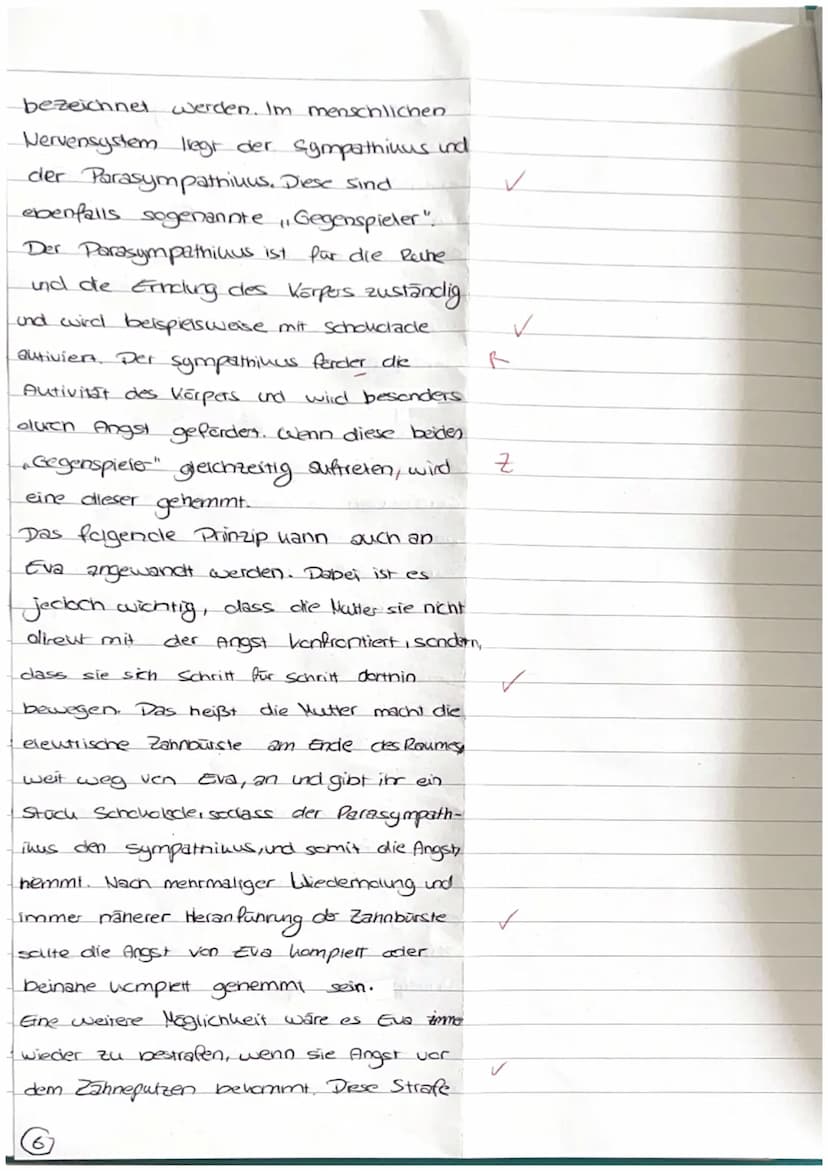 bezeichnet werden. Im menschlichen
Nervensystem liegt der Sympathikus und
der Parasympathikus. Diese sind
ebenfalls sogenannte „Gegenspieler".
Der Parasympathikus ist für die Ruhe
und die Erholung des Körpers zuständig
und wird beispielsweise mit Schokolade
aktiviert. Der Sympathikus förder die
R
Aktivität des Körpers und wird besonders
durch Angst gefördert. Wenn diese beiden
„Gegenspieler" gleichzeitig auftreten, wird
Z
eine dieser gehemmt.
Das folgende Prinzip kann auch an
Eva angewandt werden. Dabei ist es
jedoch wichtig, dass die Mutter sie nicht
direkt mit der Angst konfrontiert, sondern,
dass sie sich Schritt für Schritt dorthin
bewegen. Das heißt die Mutter macht die
elektrische Zahnbürste am Ende des Raumes,
weit weg von Eva, an und gibt ihr ein
Stück Schokolade, sodass der Parasympath-
ikus den Sympathikus, und somit die Angst,
hemmt. Nach mehrmaliger Wiederholung und
immer näherer Heranführung der Zahnbürste
sollte die Angst von Eva komplett oder
beinahe komplett gehemmt sein.
Eine weitere Möglichkeit wäre es Eva immer
wieder zu bestrafen, wenn sie Angst vor
dem Zähneputzen bekommt. Diese Strafe
6